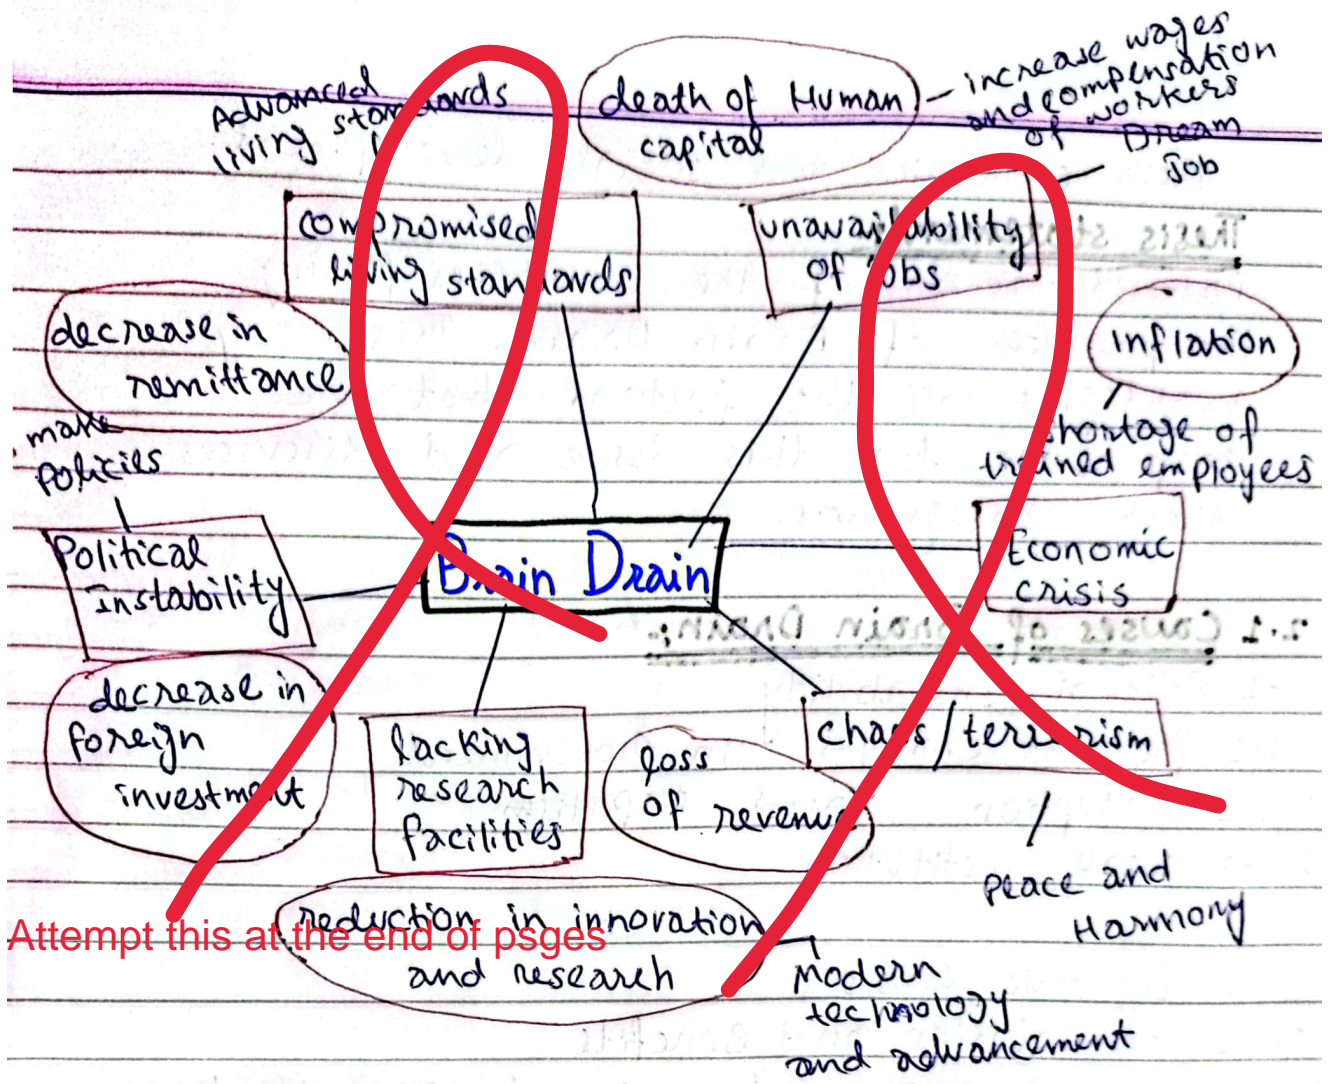 Advanced
living standards
death of Human
capital
increase wages
and compensation
of workers
Dream
Job
compromised
living standards
unavailability
of jobs
Thesis
decrease in
remittance
inflation
make
policies
shortage of
trained employees
Political
instability
Brain Drain
Economic
crisis
2.1 Causes of Brain Drain:
decrease in
foreign
investment
lacking
research
facilities
loss
of revenue
chaos/terrorism
Peace and
Harmony
Attempt this at the end of psges
reduction in innovation
and research
Modern
technology
and advancement